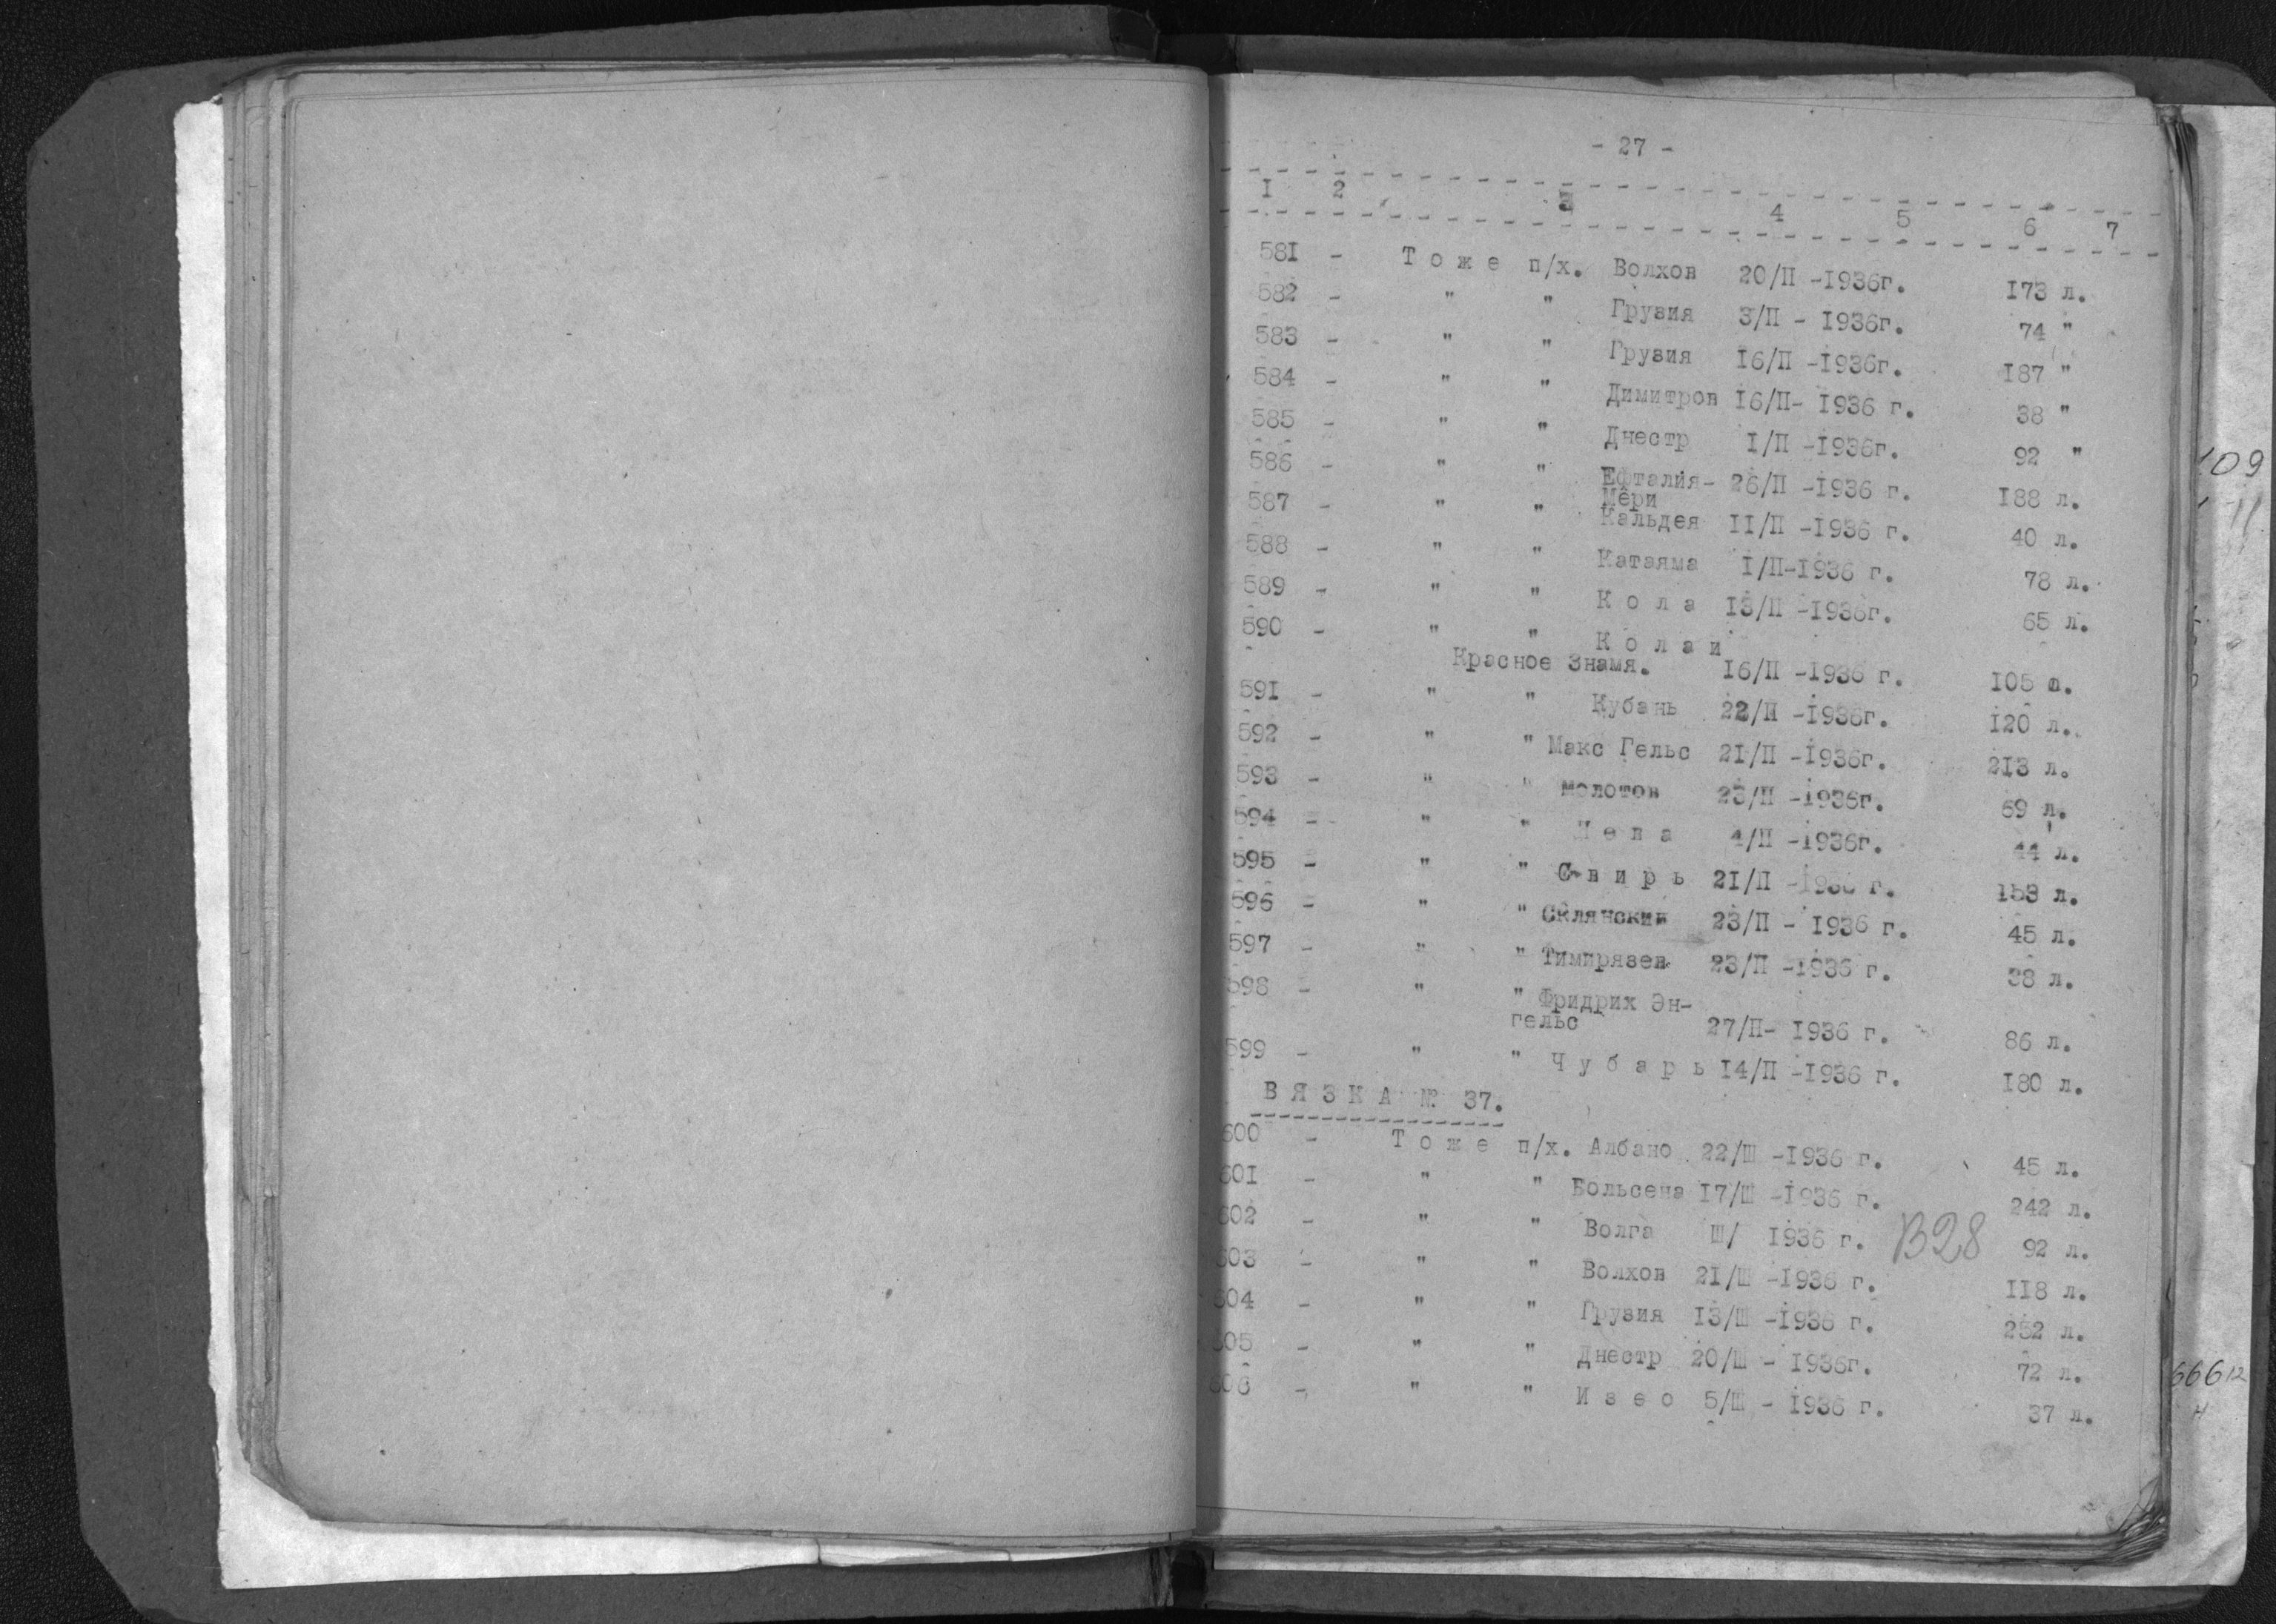 - 27 -
I 2 3 4 5 6 7
581 - Тоже п/х. Волхов 20/II -1936г. 173 л.
582 - " " Грузия 3/II - 1936г. 74 "
583 - " " Грузия 16/II -1936г. 187 "
584 - " " Димитров 16/II- 1936 г. 38 "
585 - " " Днестр 1/II -1936г. 92 "
586 - " " Ефталия- 26/II -1936 г. 188 л.
Мери
587 - " " Кальдея 11/II -1936 г. 40 л.
588 - " " Катаяма 1/II-1936 г. 78 л.
589 - " " Кола 13/II -1936г. 65 л.
590 - " " Колаи
Красное Знамя. 16/II -1936 г. 105 л.
591 - " " Кубань 22/II -1936г. 120 л.
592 - " " Макс Гельс 21/II -1936г. 213 л.
593 - " " Молотов 23/II -1936г. 69 л.
594 - " " 4/II -1936г. 44 л.
595 - " " Свирь 21/II -1936 г. 153 л.
596 - " " Склянский 23/II - 1936 г. 45 л.
597 - " " Тимирязев 23/II -1936 г. 38 л.
598 - " " Фридрих Эн-
гельс 27/II- 1936 г. 86 л.
599 - " " Чубарь 14/II -1936 г. 180 л.
ВЯЗКА № 37.
600 - Тоже п/х. Албано 22/Ш -1936 г. 45 л.
601 - " " Больсена 17/Ш -1936 г. 242 л.
602 - " " Волга Ш/ 1936 г. В28 92 л.
603 - " " Волхов 21/Ш -1936 г. 118 л.
604 - " " Грузия 13/Ш -1936 г. 252 л.
605 - " " Днестр 20/Ш - 1936г. 72 л.
606 - " " Изео 5/Ш - 1936 г. 37 л.
109
666